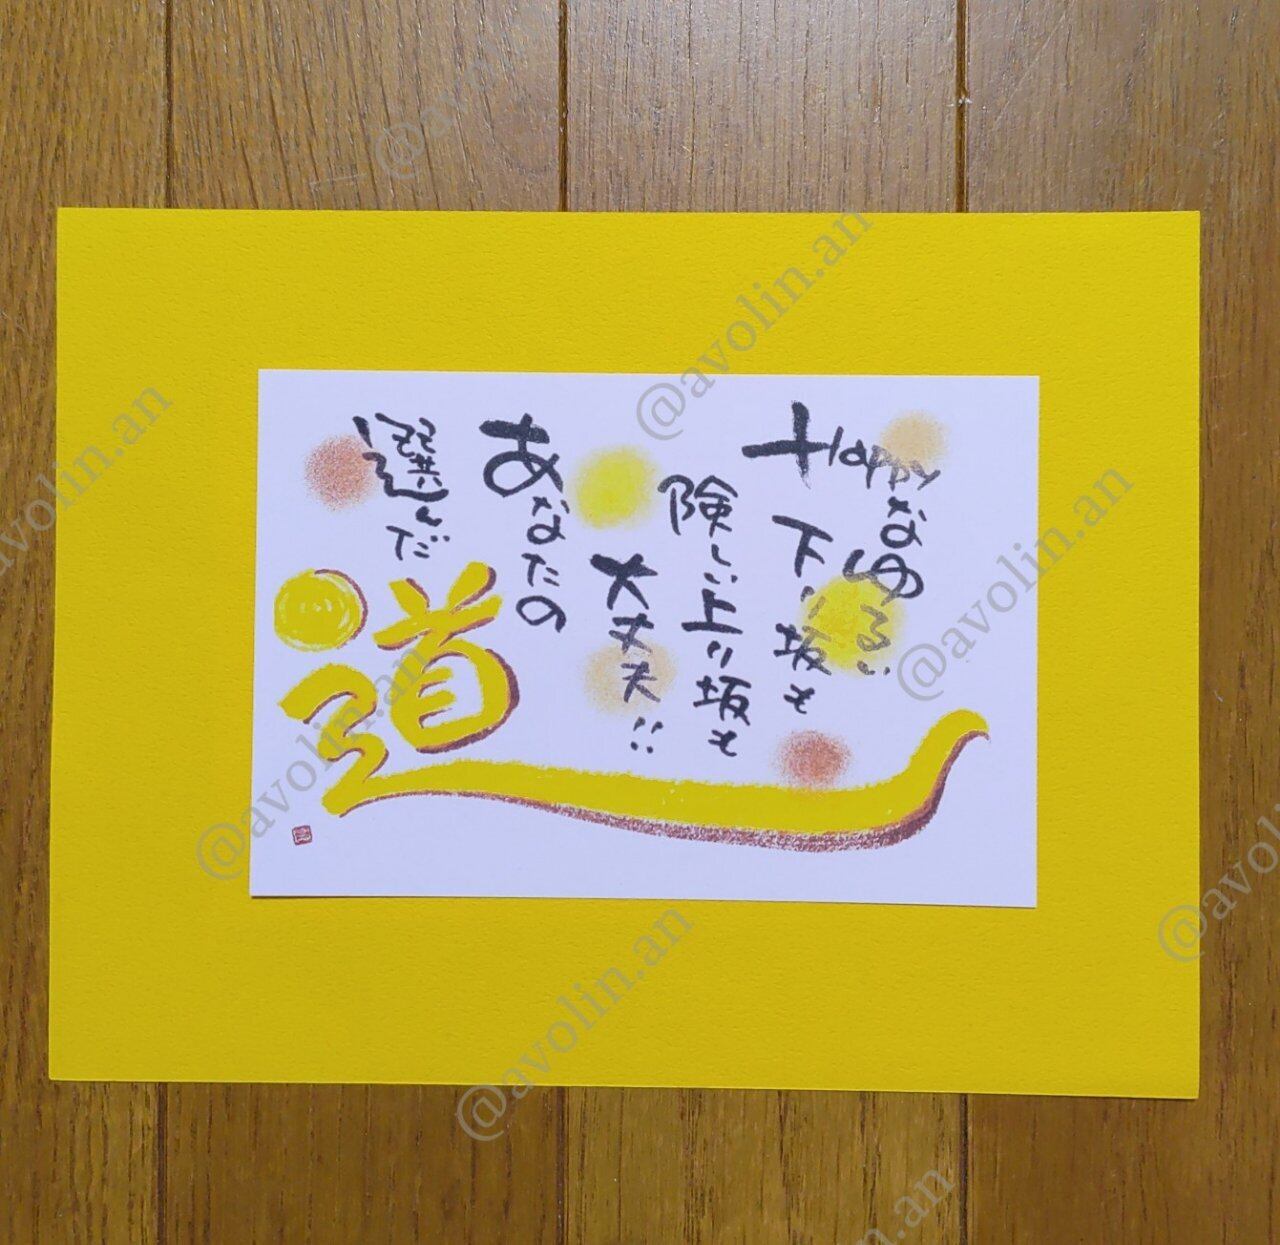 Happyな
ゆるい
下り坂も
険しい上り坂も
大丈夫!!
あなたの
選んだ
道
@avolin.an
@avolin.an
@avolin.an
@avolin.an
@avolin.an
@avolin.an
@avolin.an
@avolin.an